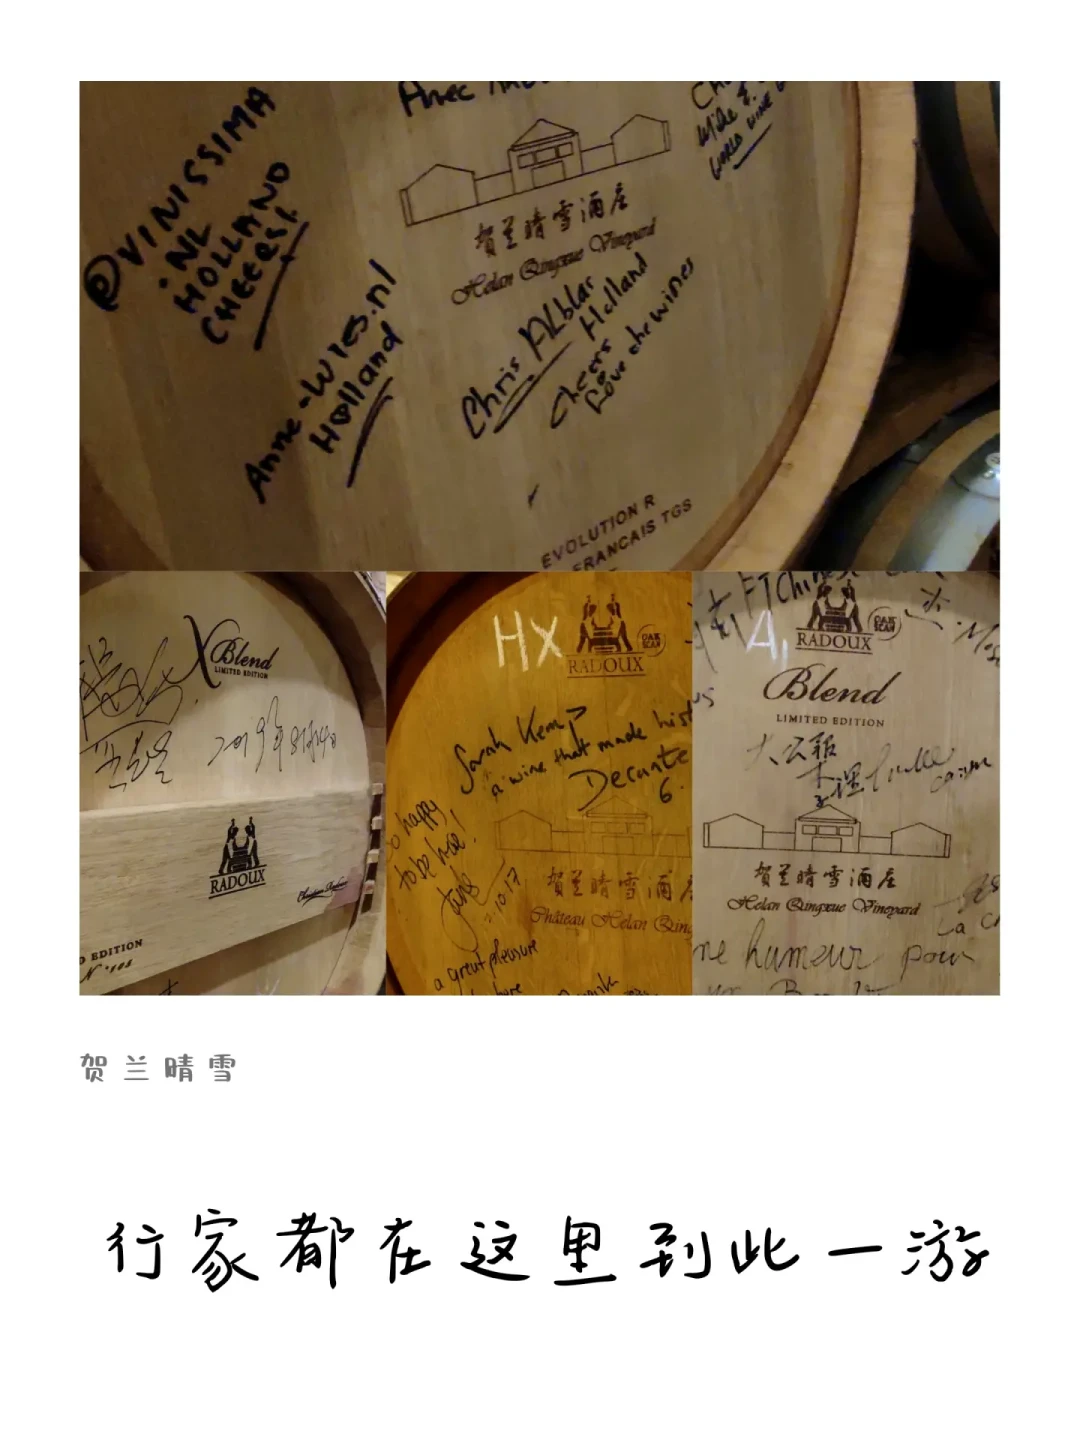 Avec
@VINISSIMA
.NL
HOLLAND
CHEERS!
Mike &
WORLD WINE
贺兰晴雪酒庄
Helan Qingxue Vineyard
Anne-Wies.nl
Holland
Chris Alblas
Holland
Cheers
Love the wines
EVOLUTION R
FRANCAIS TGS
X Blend
LIMITED EDITION
RADOUX
D EDITION
HX
OAK SCAN
RADOUX
Sarah Kemp
a wine that made hist
Decante
6.
o happy
to be here!
.10.17
贺兰晴雪酒
Château Helan Qing
a great pleasure
here
FTChinese
A,
OAK SCAN
RADOUX
Blend
LIMITED EDITION
大公報
贺兰晴雪酒庄
Helan Qingxue Vineyard
La C
ne humeur pour
贺兰晴雪
行家都在这里到此一游